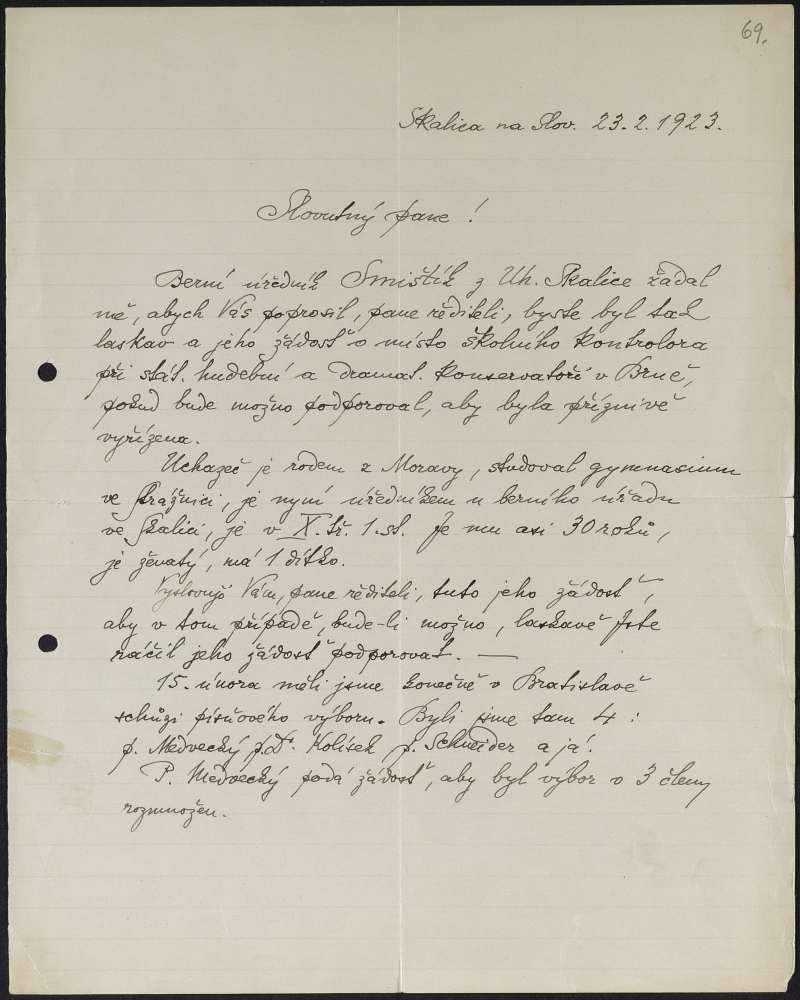 69.
Skalica na Slov. 23.2.1923.
Slovutný pane!
Berní úředník Smištík z Uh. Skalice žádal
mě, abych Vás poprosil, pane řediteli, byste byl tak
laskav a jeho žádosť o místo školního kontrolora
při stát. hudební a dramat. konservatoři v Brně,
pokud bude možno podporoval, aby byla příznivě
vyřízena.
Uchazeč je rodem z Moravy, studoval gymnasium
ve Strážnici, je nyní úředníkem u berního úřadu
ve Skalici, je v X. tř. 1. st. Je mu asi 30 roků,
je ženatý, má 1 dítko.
Vyslovuji Vám, pane řediteli, tuto jeho žádosť,
aby v tom případě, bude-li možno, laskavě Jste
ráčil jeho žádosť podporovat. —
15. února měli jsme konečně v Bratislavě
schůzi písňového výboru. Byli jsme tam 4:
p. Medvecký p. Dr. Kolísek p. Schneider a já.
P. Medvecký podá žádosť, aby byl výbor o 3 členy
rozmnožen.